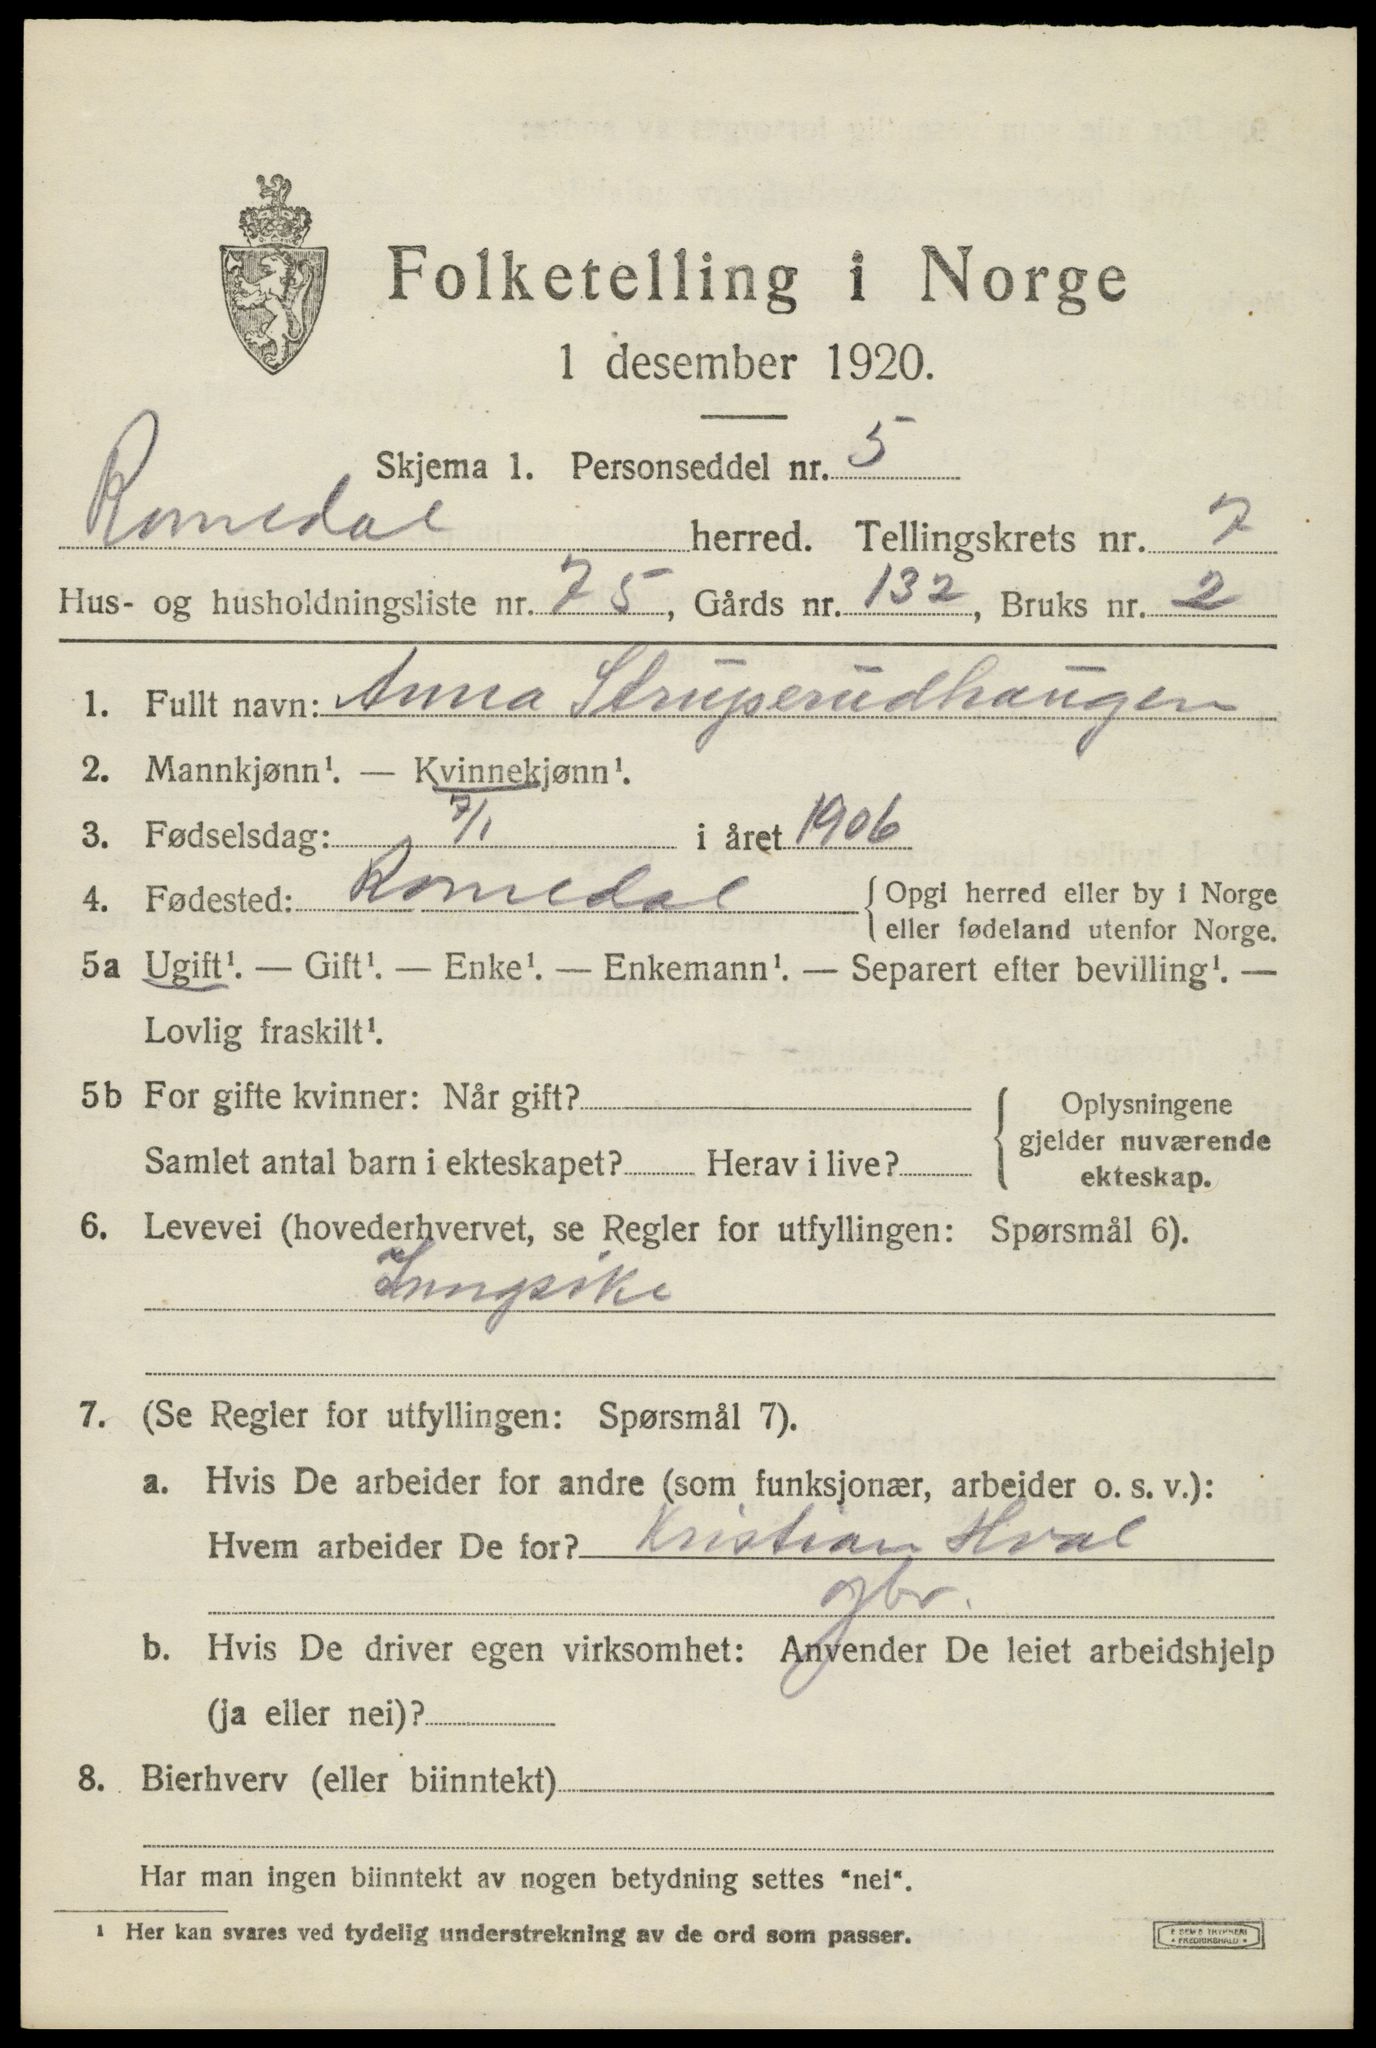 Folketelling i Norge
1 desember 1920.
Skjema 1. Personseddel nr. 5
Romedal herred. Tellingskrets nr. 7
Hus- og husholdningsliste nr. 75, Gårds nr. 132, Bruks nr. 2
1. Fullt navn: Anna Struperudhaugen
2. Mannkjønn¹. — Kvinnekjønn¹.
3. Fødselsdag: 7/1 i året 1906
4. Fødested: Romedal { Opgi herred eller by i Norge
eller fødeland utenfor Norge.
5a Ugift¹. — Gift¹. — Enke¹. — Enkemann¹. — Separert efter bevilling¹. —
Lovlig fraskilt¹.
5b For gifte kvinner: Når gift?
Samlet antal barn i ekteskapet? Herav i live?
{ Oplysningene
gjelder nuværende
ekteskap.
6. Levevei (hovederhvervet, se Regler for utfyllingen: Spørsmål 6).
Inngpike
7. (Se Regler for utfyllingen: Spørsmål 7).
a. Hvis De arbeider for andre (som funksjonær, arbeider o. s. v.):
Hvem arbeider De for? Kristian Hval
gbr.
b. Hvis De driver egen virksomhet: Anvender De leiet arbeidshjelp
(ja eller nei)?
8. Bierhverv (eller biinntekt)
Har man ingen biinntekt av nogen betydning settes "nei".
¹ Her kan svares ved tydelig understrekning av de ord som passer.
E SEM'S TRYKKERI
• FREDRIKSHALD •